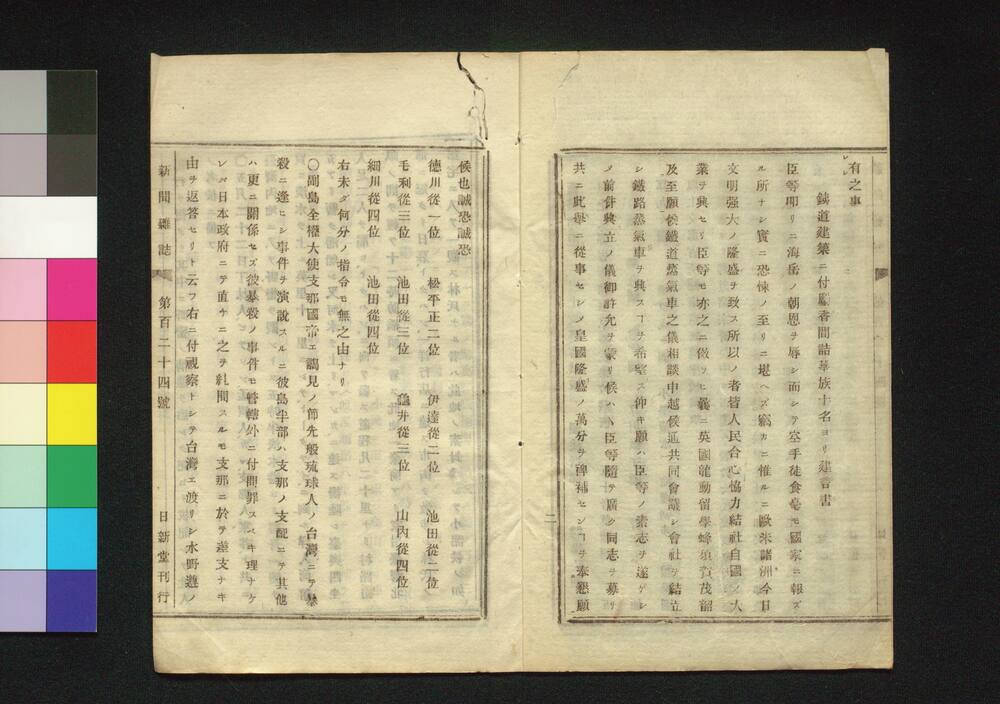 有之事
鐵道建築ニ付麝香間詰華族十名ヨリ建言書
臣等叨リニ海岳ノ朝恩ヲ辱シ而シテ空手徒食毫モ國家ニ報ズ
ル所ナシ實ニ恐悚ノ至リニ堪ヘズ竊カニ惟ルニ歐米諸洲今日
文明强大ノ隆盛ヲ致ス所以ノ者皆人民合心協力結社自國ノ大
業ヲ興セリ臣等モ亦之ニ倣ソヒ曩ニ英國龍動留學蜂須賀茂韶
及至願候鐵道蒸氣車之儀相談申越候近共同會議シ會社ヲ結立
シ鐵路蒸氣車ヲ興スヿヲ希望ス仰キ願ハ臣等ノ素志ヲ遂ゲシ
メ前件興立ノ儀御許允ヲ蒙リ候ハヽ臣等隨テ廣ク同志ヲ募リ
共ニ此擧ニ從事セシメ皇國隆盛ノ萬分ヲ裨補センヿヲ奉懇願
二
候也誠恐誠恐
德川從一位 松平正二位 伊達從二位 池田從二位
毛利從三位 池田從三位 龜井從三位 山內從四位
細川從四位 池田從四位
右未ダ何分ノ指令モ無之由ナリ
〇副島全權大使支那國帝エ謁見ノ節先般琉球人ノ台灣ニテ暴
殺ニ逢ヒシ事件ヲ演說スルニ彼島半部ハ支那ノ支配ニテ其他
ハ更ニ關係セズ彼暴殺ノ事件モ管轄外ニ付問罪スベキ理ナケ
レバ日本政府ニテ直チニ之ヲ糺問スルモ支那ニ於テ差支ナキ
由ヲ返答セリト云フ右ニ付視察トシテ台灣エ渡リシ水野遵ノ
新聞雜誌 第百二十四號 日新堂刊行